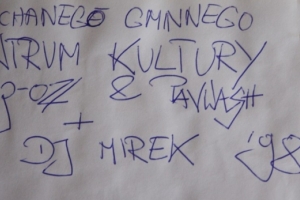 CHANEGO GMNNEGO
NTRUM KULTURY
P-OZ &
+
DJ MIREK '98